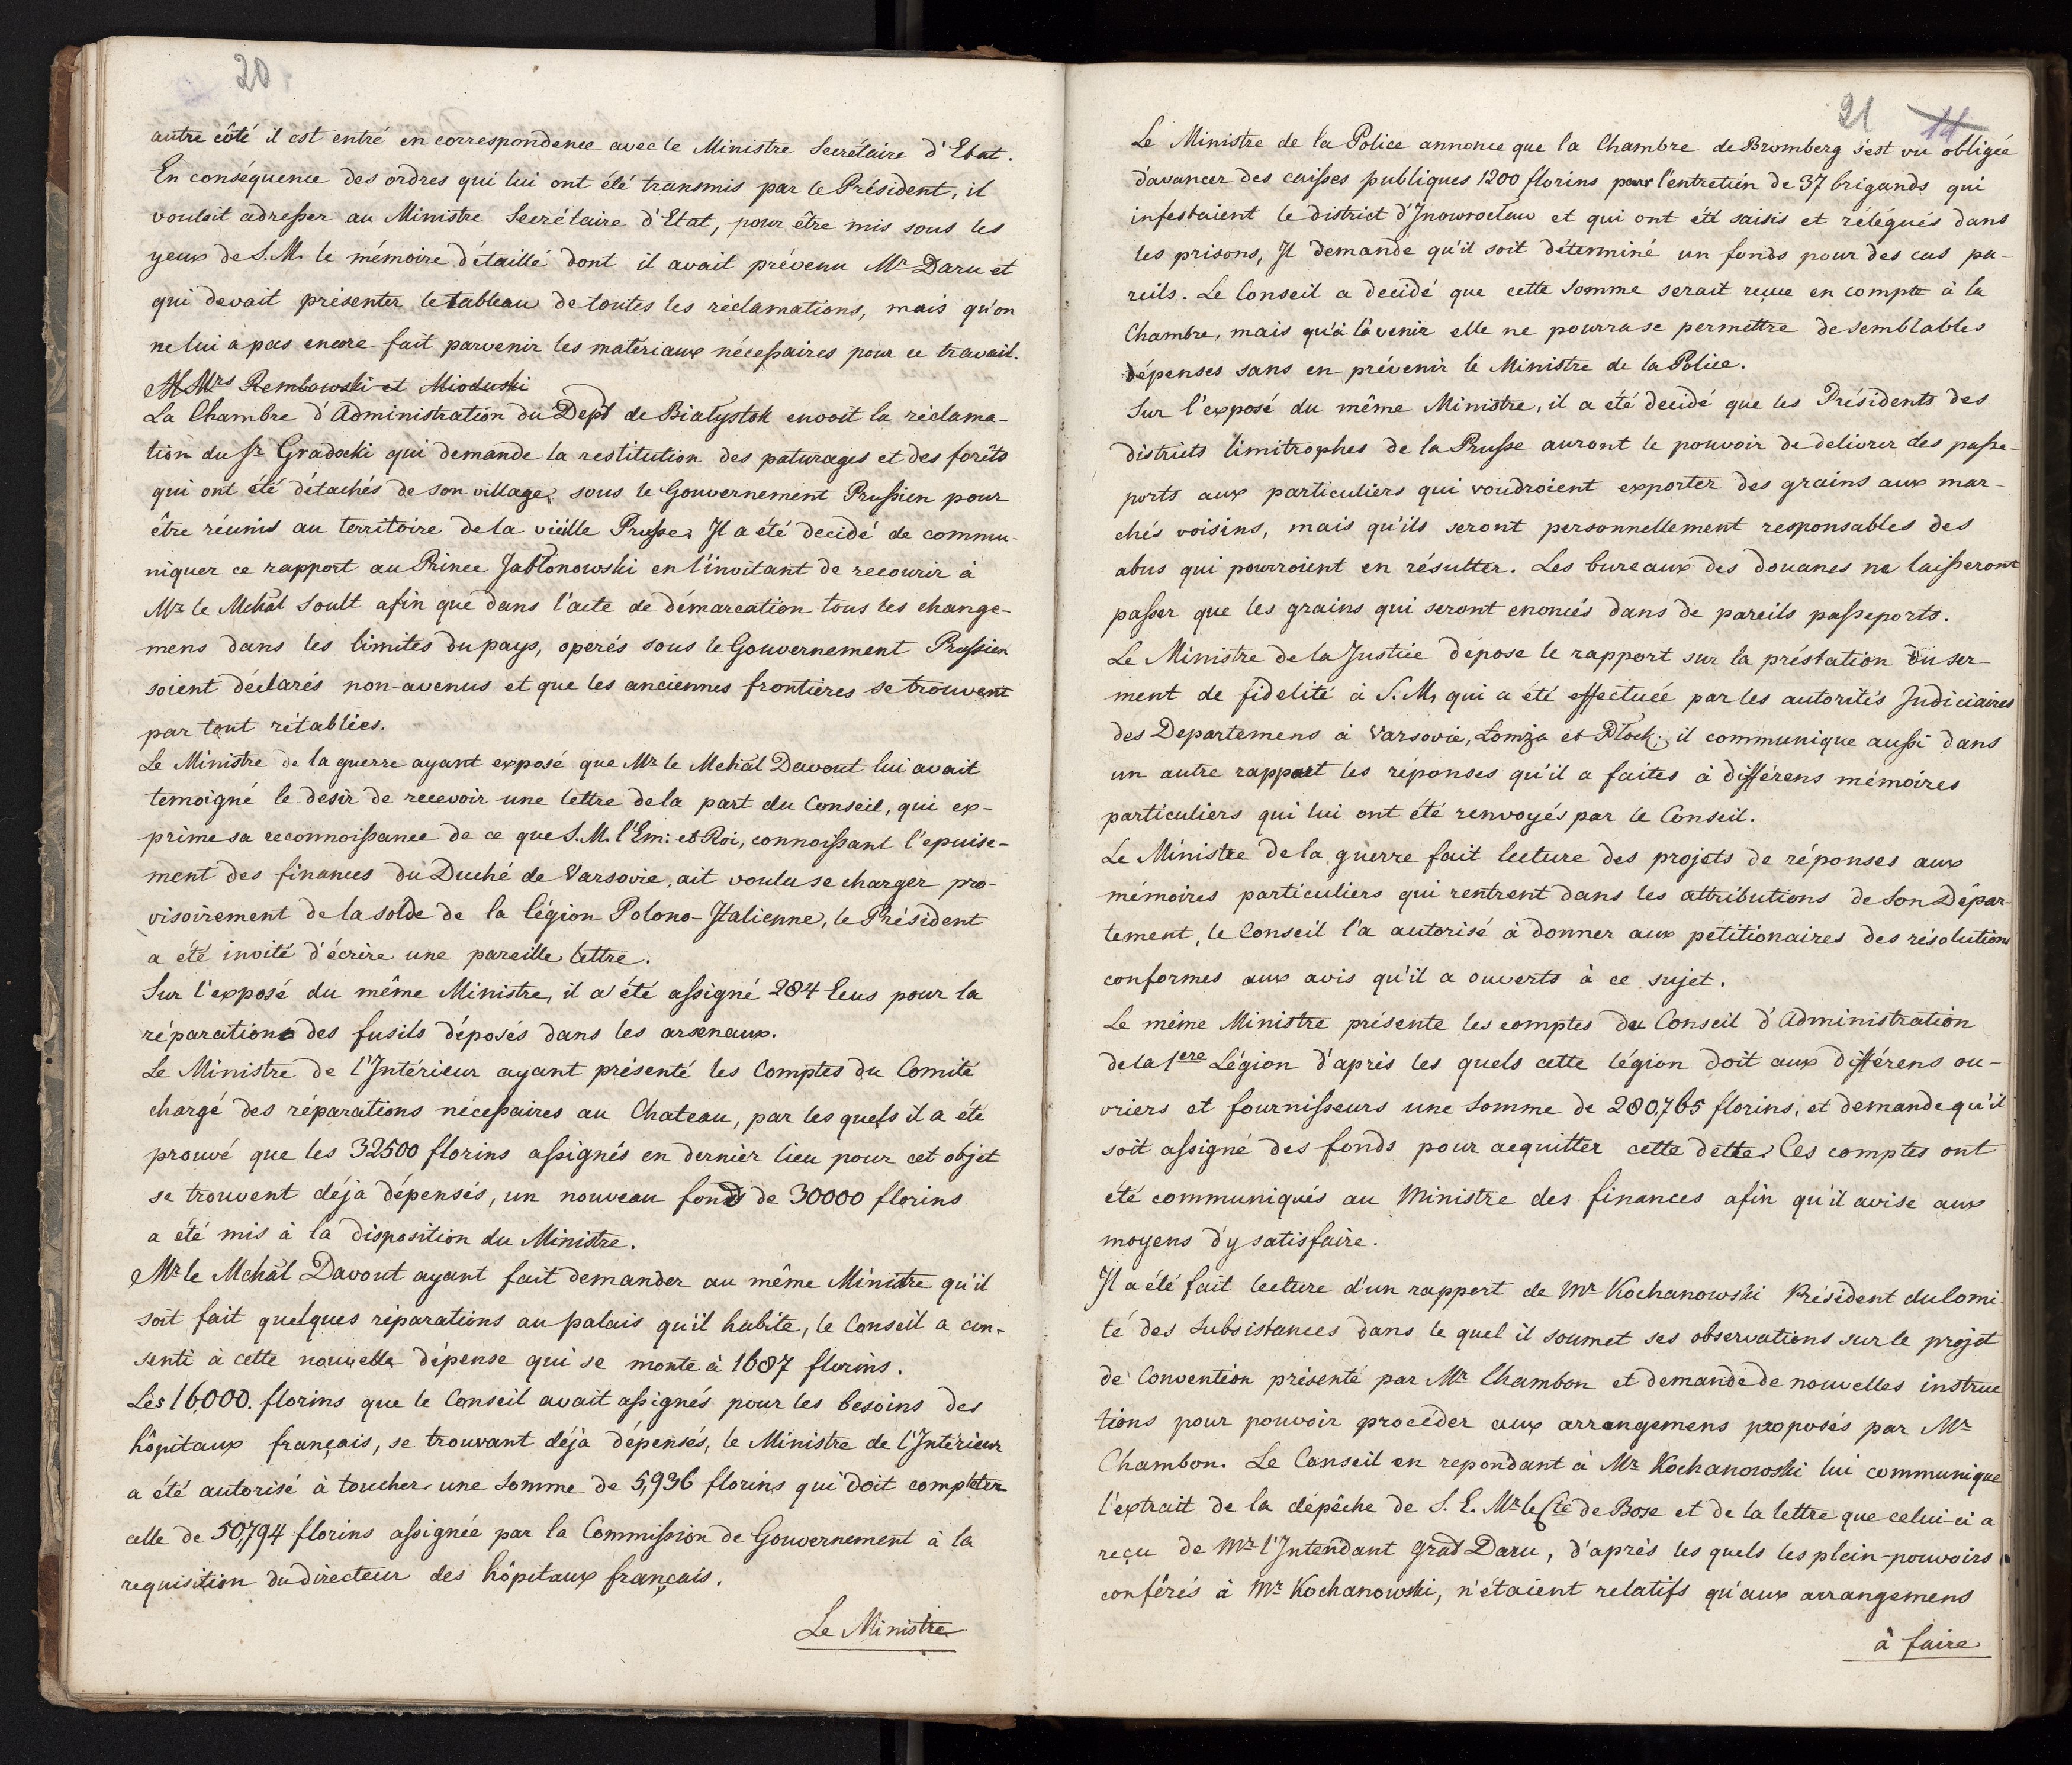 20
autre côté il est entré en correspondence avec le Ministre Secrétaire d'Etat.
En conséquence des ordres qui lui ont été transmis par le Président, il
vouloit adresser au Ministre Secrétaire d'Etat, pour être mis sous les
yeux de S.M. le mémoire détaillé dont il avait prévenu Mr Daru et
qui devait présenter le tableau de toutes les réclamations, mais qu'on
ne lui a pas encore fait parvenir les matériaux nécessaires pour ce travail.
Mrs Rembowski et Mioduski
La Chambre d'Administration du Dept de Białystok envoit la réclama-
tion du Sr Gradocki qui demande la restitution des paturages et des forêts
qui ont été détachés de son village, sous le Gouvernement Prussien pour
être réunis au territoire de la vieille Prusse. Il a été decidé de commu-
niquer ce rapport au Prince Jabłonowski en l'invitant de recourir à
Mr le Mchal Soult afin que dans l'acte de démarcation tous les change-
mens dans les limites du pays, operés sous le Gouvernement Prussien
soient déclarés non-avenus et que les anciennes frontières se trouvent
par tout rétablies.
Le Ministre de la guerre ayant exposé que Mr le Mchal Davout lui avait
temoigné le desir de recevoir une lettre de la part du Conseil, qui ex-
prime sa reconnoissance de ce que S.M. l'Em: et Roi, connoissant l'epuise-
ment des finances du Duché de Varsovie, ait voulu se charger pro-
visoirement de la solde de la légion Polono-Italienne, le Président
a été invité d'écrire une pareille lettre.
Sur l'exposé du même Ministre, il a été assigné 284 Ecus pour la
réparation des fusils déposés dans les arsenaux.
Le Ministre de l'Intérieur ayant présenté les Comptes du Comité
chargé des réparations nécessaires au Chateau, par les quels il a été
prouvé que les 32500 florins assignés en dernier lieu pour cet objet
se trouvent déja dépensés, un nouveau fonds de 30000 florins
a été mis à la disposition du Ministre.
Mr le Mchal Davout ayant fait demander au même Ministre qu'il
soit fait quelques réparations au palais qu'il habite, le Conseil a con-
senti à cette nouvelle dépense qui se monte à 1687 florins.
Les 16000. florins que le Conseil avait assignés pour les besoins des
hôpitaux français, se trouvant déja dépensés, le Ministre de l'Intérieur
a été autorisé à toucher une somme de 5,936 florins qui doit completer
celle de 50,794 florins assignée par la Commission de Gouvernement à la
requisition du directeur des hôpitaux français.
Le Ministre
21 11
Le Ministre de la Police annonce que la Chambre de Bromberg s'est vu obligée
d'avancer des caisses publiques 1200 florins pour l'entretien de 37 brigands qui
infestaient le district d'Inowrocław et qui ont été saisis et rélégués dans
les prisons, Il demande qu'il soit déterminé un fonds pour des cas pa-
reils. Le Conseil a decidé que cette somme serait reçue en compte à la
Chambre, mais qu'à l'avenir elle ne pourra se permettre de semblables
dépenses sans en prévenir le Ministre de la Police.
Sur l'exposé du même Ministre, il a été decidé que les Présidents des
districts limitrophes de la Prusse auront le pouvoir de delivrer des passe-
ports aux particuliers qui voudroient exporter des grains aux mar-
chés voisins, mais qu'ils seront personnellement responsables des
abus qui pourroient en résulter. Les bureaux des douanes ne laisseront
passer que les grains qui seront enoncés dans de pareils passeports.
Le Ministre de la Justice dépose le rapport sur la préstation du ser-
ment de fidelité à S.M, qui a été effectuée par les autorités Judiciaires
des Departemens à Varsovie, Łomża et Płock; il communique aussi dans
un autre rapport les réponses qu'il a faites à différens mémoires
particuliers qui lui ont été renvoyés par le Conseil.
Le Ministre de la guerre fait lecture des projets de réponses aux
mémoires particuliers qui rentrent dans les attributions de son Dépar-
tement, le Conseil l'a autorisé à donner aux petitionaires des résolutions
conformes aux avis qu'il a ouverts à ce sujet.
Le même Ministre présente les comptes du Conseil d'Administration
de la 1ere Légion d'après les quels cette légion doit aux différens ou-
vriers et fournisseurs une somme de 280,765 florins, et demande qu'il
soit assigné des fonds pour acquitter cette dette. Ces comptes ont
été communiqués au Ministre des finances afin qu'il avise aux
moyens d'y satisfaire.
Il a été fait lecture d'un rapport de Mr Kochanowski Président du Comi-
té des Subsistances dans le quel il soumet ses observations sur le projet
de Convention présenté par Mr Chambon et demande de nouvelles instruc
tions pour pouvoir procéder aux arrangemens proposés par Mr
Chambon. Le Conseil en repondant à Mr Kochanowski lui communique
l'extrait de la dépêche de S.E. Mr le Cte de Bose et de la lettre que celui-ci a
reçu de Mr l'Intendant Gral Daru, d'après les quels les plein-pouvoirs
conférés à Mr Kochanowski, n'étaient relatifs qu'aux arrangemens
à faire